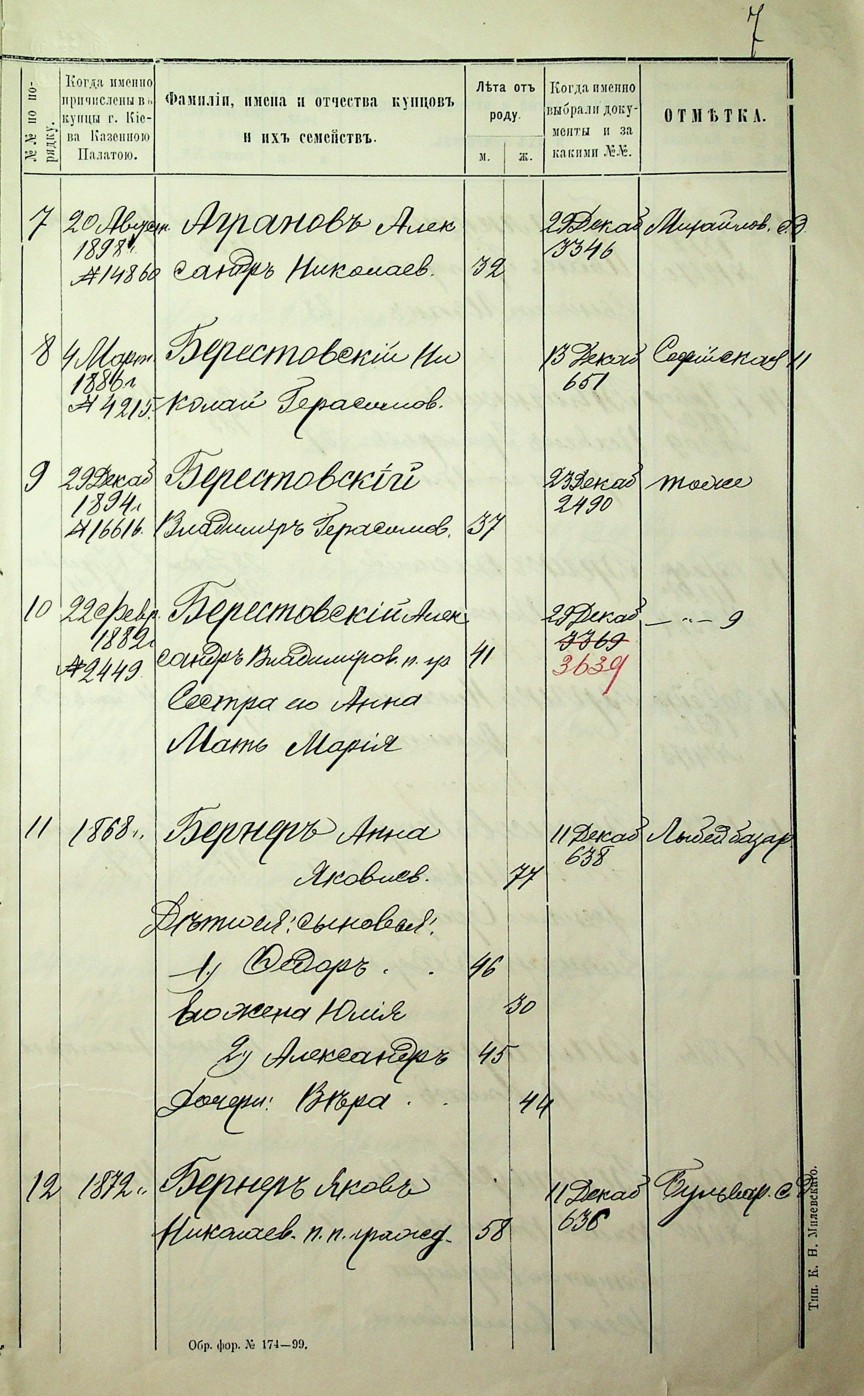 7
№№ по порядку.
Когда именно причислены въ купцы г. Кіева Казенною Палатою.
Фамиліи, имена и отчества купцовъ и ихъ семействъ.
Лѣта отъ роду.
м.
ж.
Когда именно выбрали документы и за какими №№.
ОТМѢТКА.
7 20 Август. Аграновъ Алек 29 Декаб Михайлов. с.д.
1898 г. 3346
№14860 сандръ Николаев. 32
8 4 Март. Берестовскій Ни 13 Декаб Софійская 11
1886 г 651
№4215. колай Герасимов.
9 29 Декаб Берестовскій 23 Декаб тоже
1894 г. 2490
№16616. Владиміръ Герасимов. 37
10 22 Февр. Берестовскій Алек 29 Декаб — „ — 9
1882 г 3369
№2449 сандръ Владиміров. п. гр 41 3639
Сестра его Анна
Мать Марія
11 1868 г. Бернеръ Анна 11 Декаб Лыбед базар
638
Яковлев. 77
сыновья:
1) Ѳедоръ . . 46
жена Юлія 30
2) Александръ 45
Дочери: Вѣра . . 44
12 1872 г. Бернеръ Яковъ 11 Декаб Бульвар. с.д.
636
Николаев. п. п. гражд. 58
Обр. фор. № 174—99.
Тип. К. Н. Милевскаго.